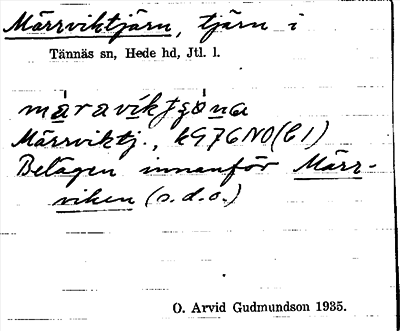 Märrviktjärn, tjärn i
Tännäs sn, Hede hd, Jtl. l.
Märrviktj., kG76NO(61)
Belägen innanför Märr-
viken (s.d.o.)
O. Arvid Gudmundson 1935.